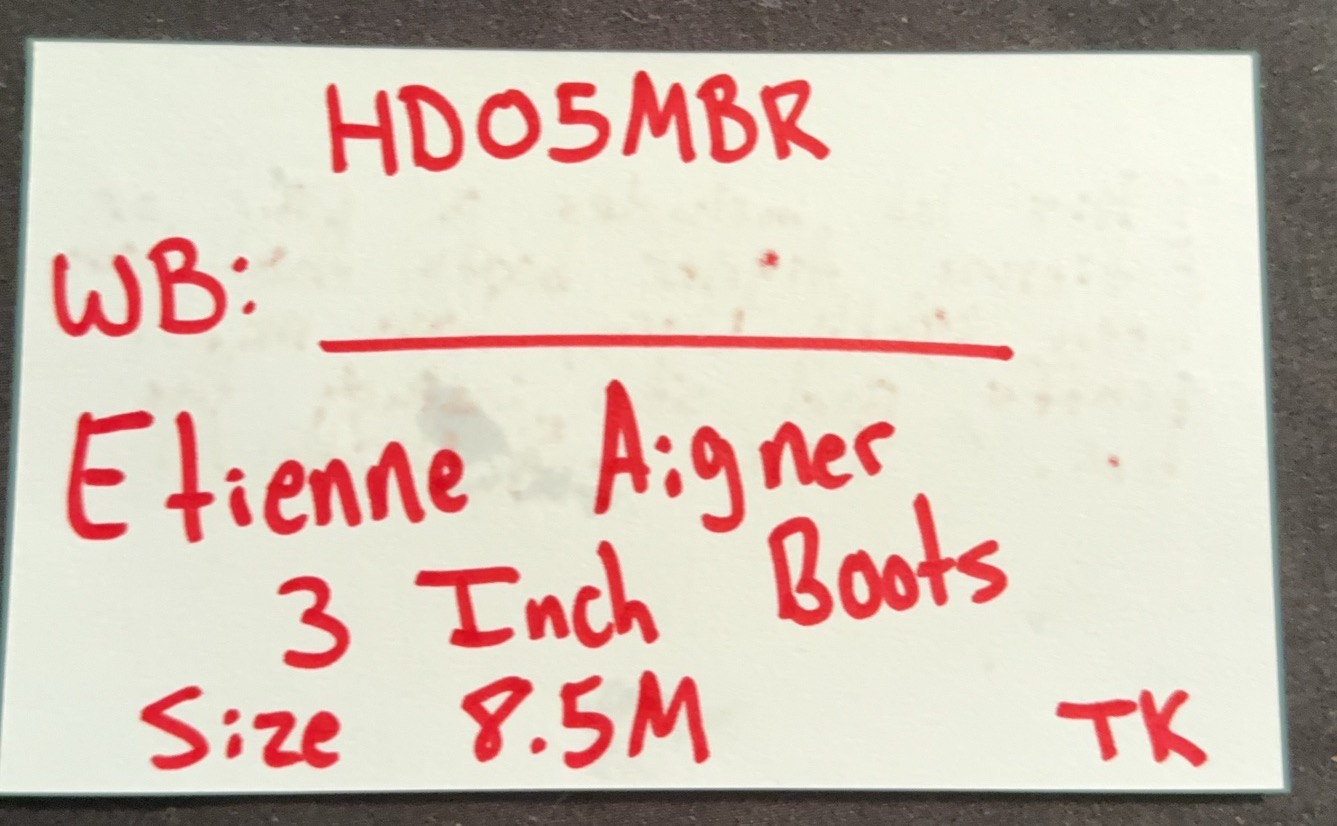 HD05MBR
WB: ____________
Etienne Aigner
3 Inch Boots
Size 8.5M TK